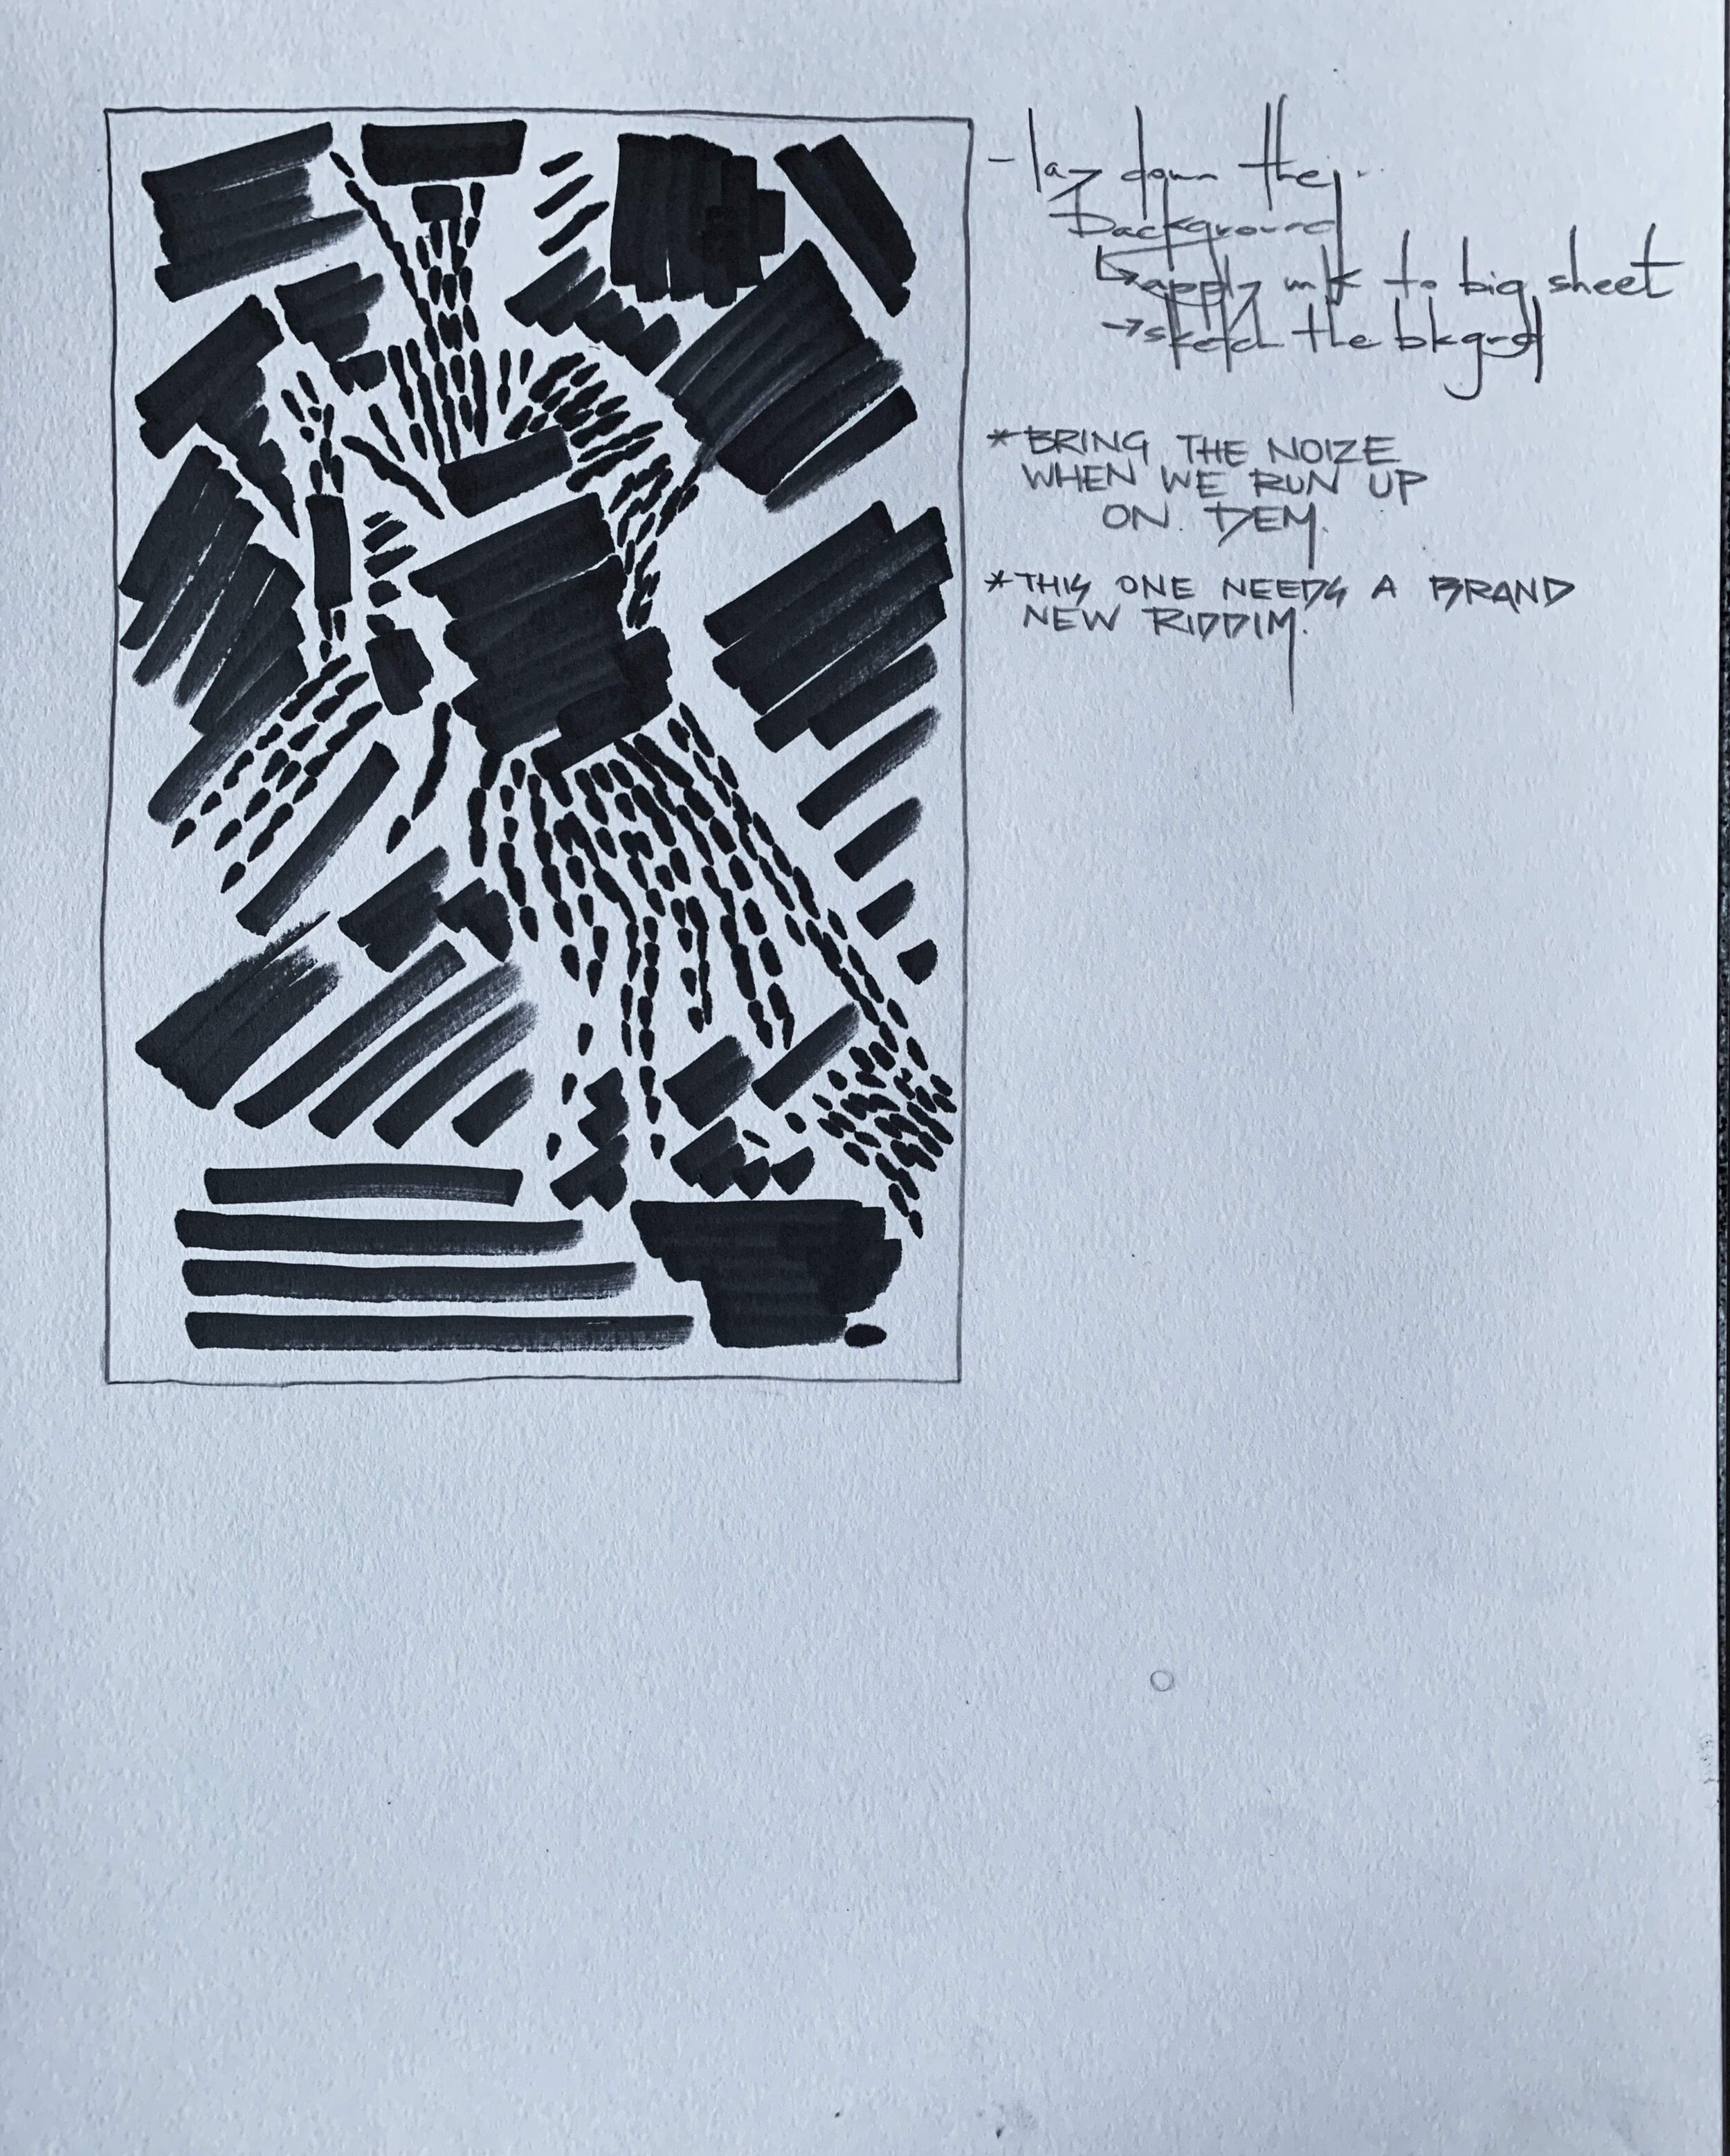 - lay down the
Background
↳ apply ink to big sheet
→ sketch the bkgrd
* BRING THE NOIZE
WHEN WE RUN UP
ON. DEM.
* THIS ONE NEEDS A BRAND
NEW RIDDIM.